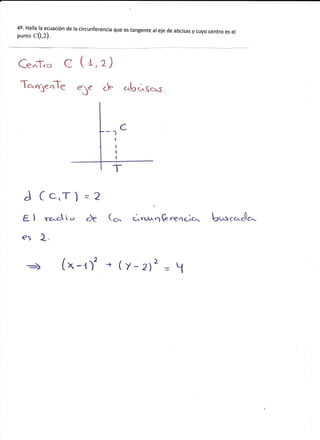 4º. Halla la ecuación de la circunferencia que es tangente al eje de abcisas y cuyo centro es el
punto C(1,2).
Centro C (1,2)
Tangente eje de abcisas.
C
T
d (C,T) = 2
El radio de la circunferencia buscada
es 2.
⇒ (x-1)² + (y-2)² = 4